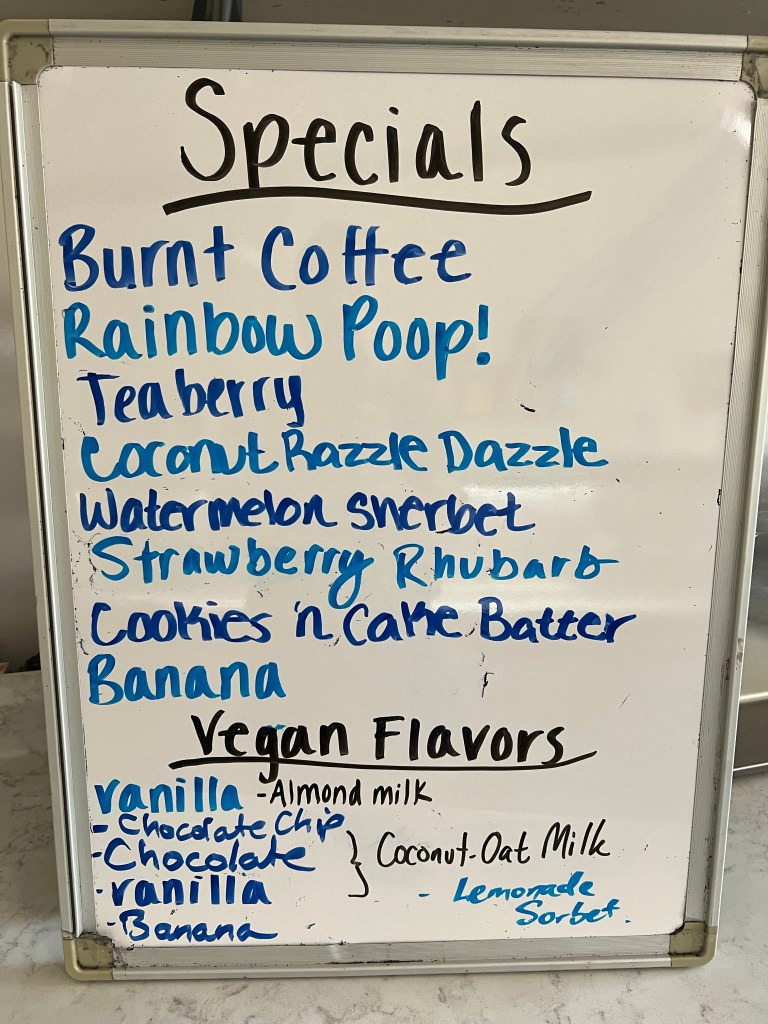 Specials
Burnt Coffee
Rainbow Poop!
Teaberry
Coconut Razzle Dazzle
Watermelon Sherbet
Strawberry Rhubarb
Cookies 'n Cake Batter
Banana
Vegan Flavors
vanilla - Almond milk
- Chocolate Chip
- Chocolate } Coconut-Oat Milk
- vanilla
- Banana
- Lemonade
Sorbet.